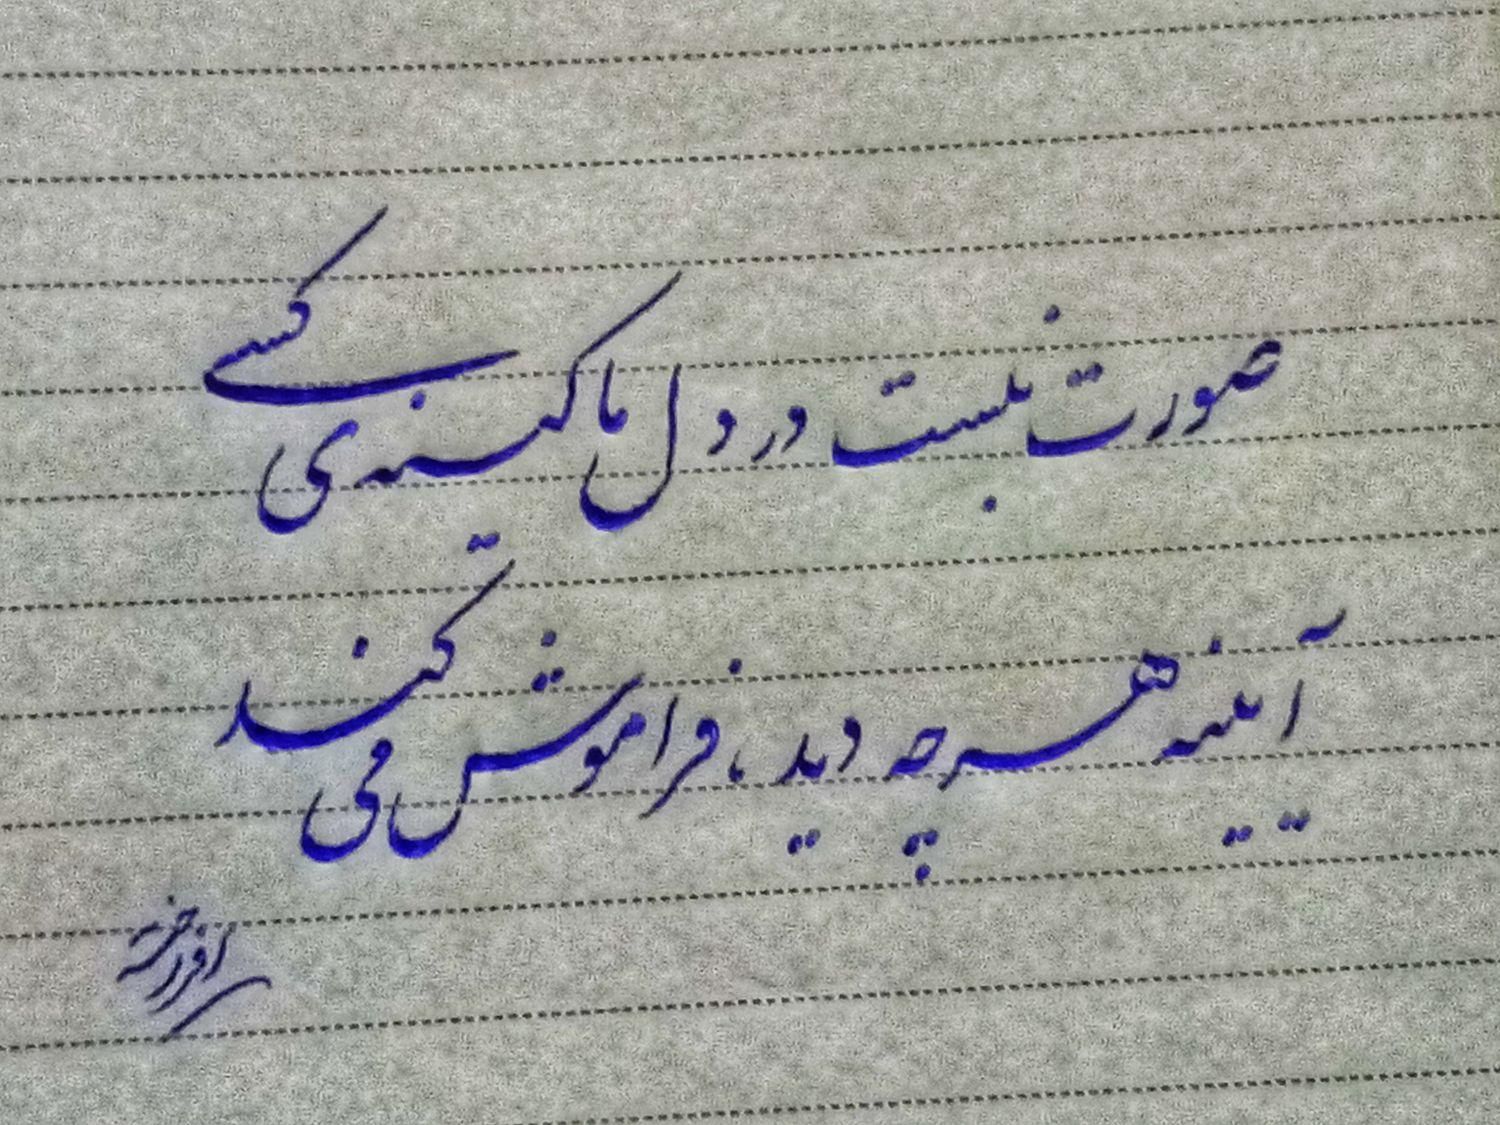 صورت نبست در دل ما کینه‌ی کسی
آیینه هرچه دید، فراموش می‌کند
افراخته